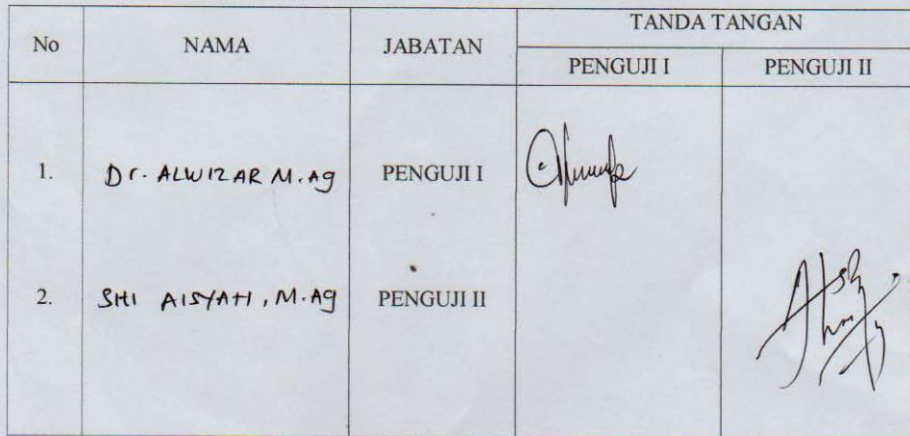 No NAMA JABATAN TANDA TANGAN
PENGUJI I PENGUJI II
1. Dr. ALWIZAR M.Ag PENGUJI I
2. SHI AISYAH, M.Ag PENGUJI II